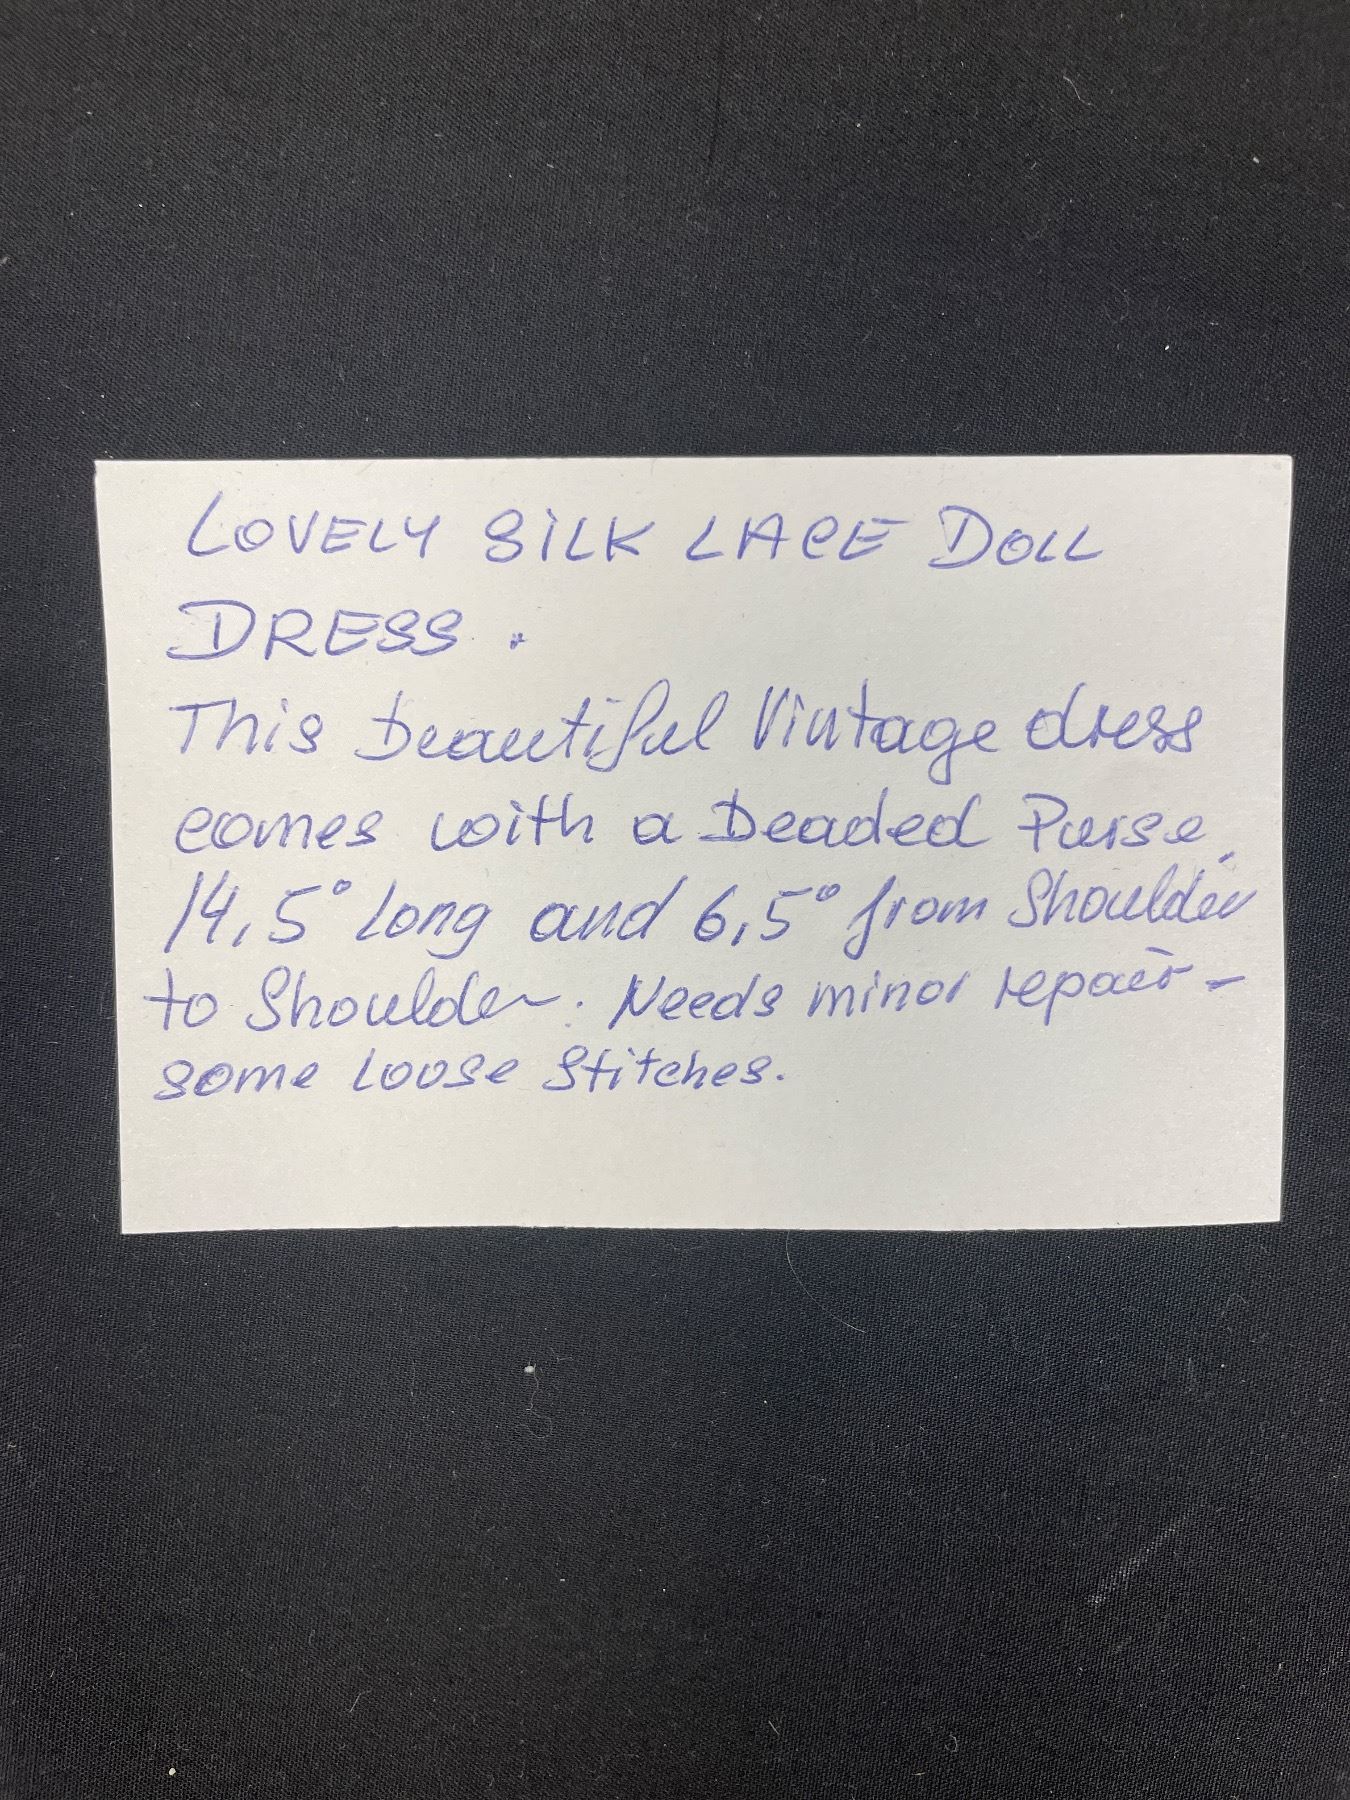 LOVELY SILK LACE DOLL
DRESS.
This beautiful Vintage dress
comes with a Beaded Purse.
14,5° long and 6,5° from Shoulder
to Shoulder. Needs minor repair -
some loose stitches.